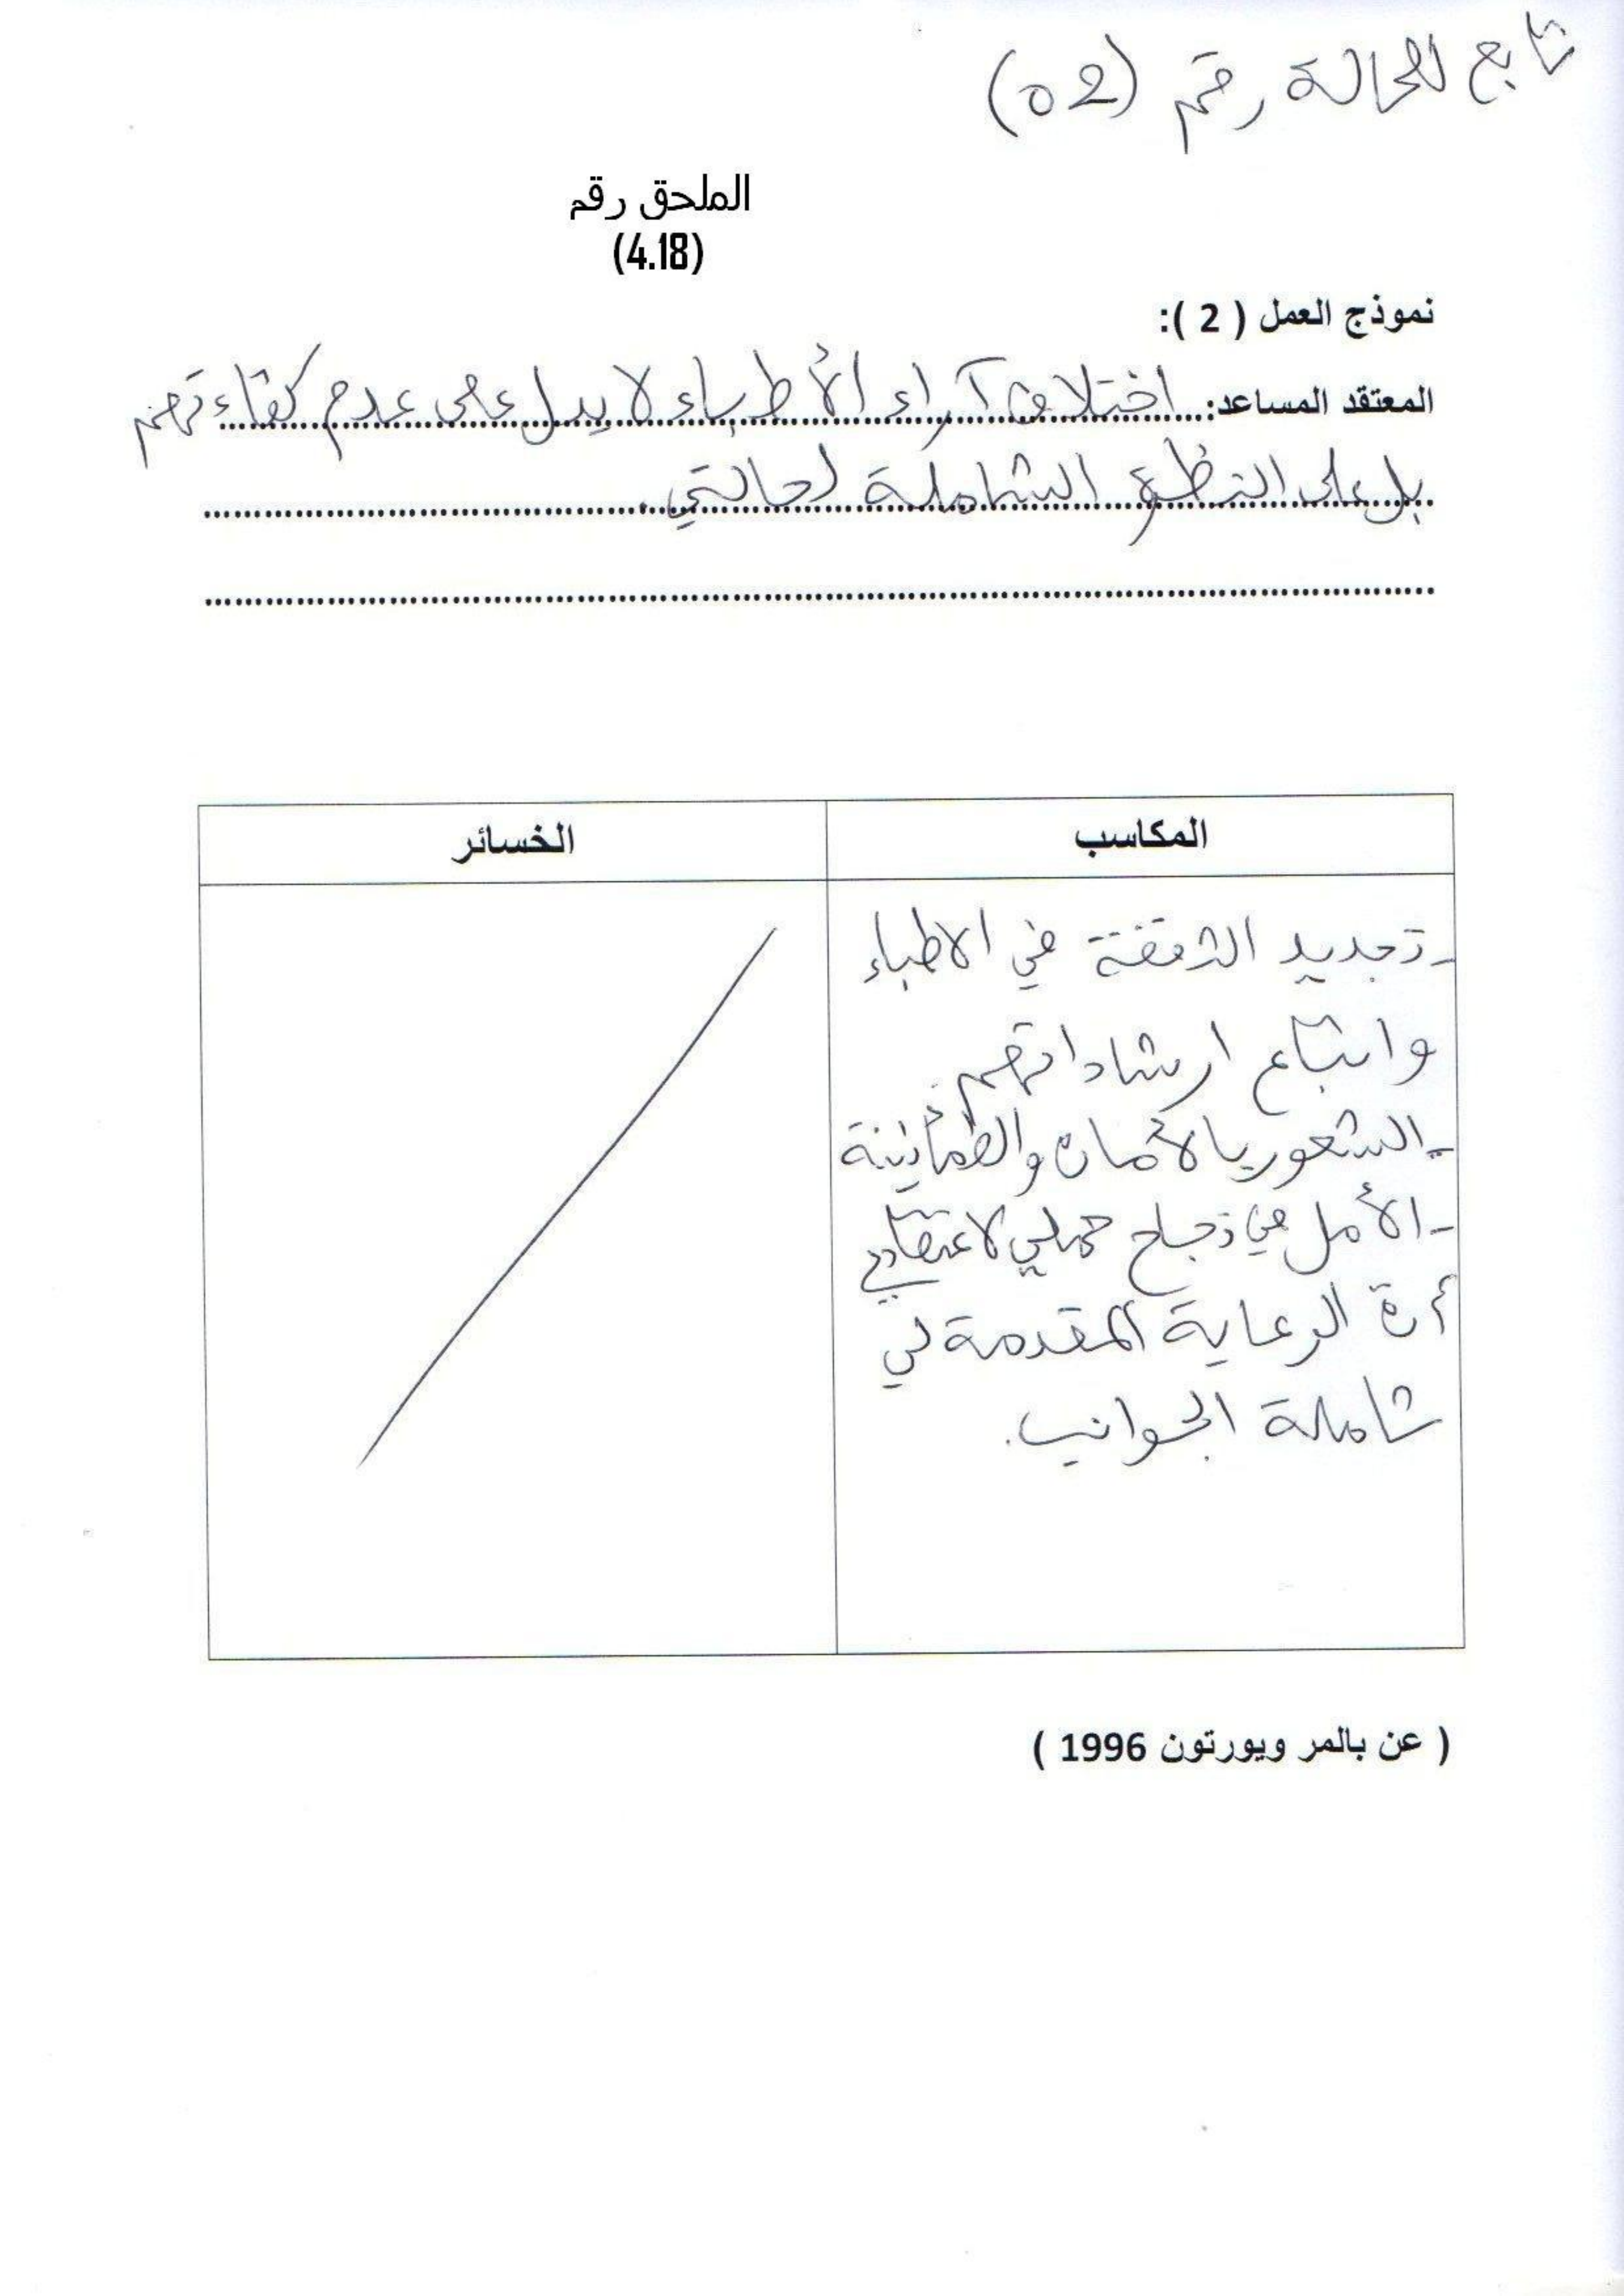 تابع للحالة رقم (02)
الملحق رقم
(4.18)
نموذج العمل ( 2 ):
المعتقد المساعد: اختلاف آراء الأطباء لا يدل على عدم كفاءتهم
بل على النظرة الشاملة لحالتي.
المكاسب
الخسائر
- تجديد الثقة في الاطباء
واتباع ارشاداتهم.
- الشعور بالأمان والطمأنينة
- الأمل في نجاح حملي لاعتقادي
أن الرعاية المقدمة لي
شاملة الجوانب.
( عن بالمر ويورتون 1996 )